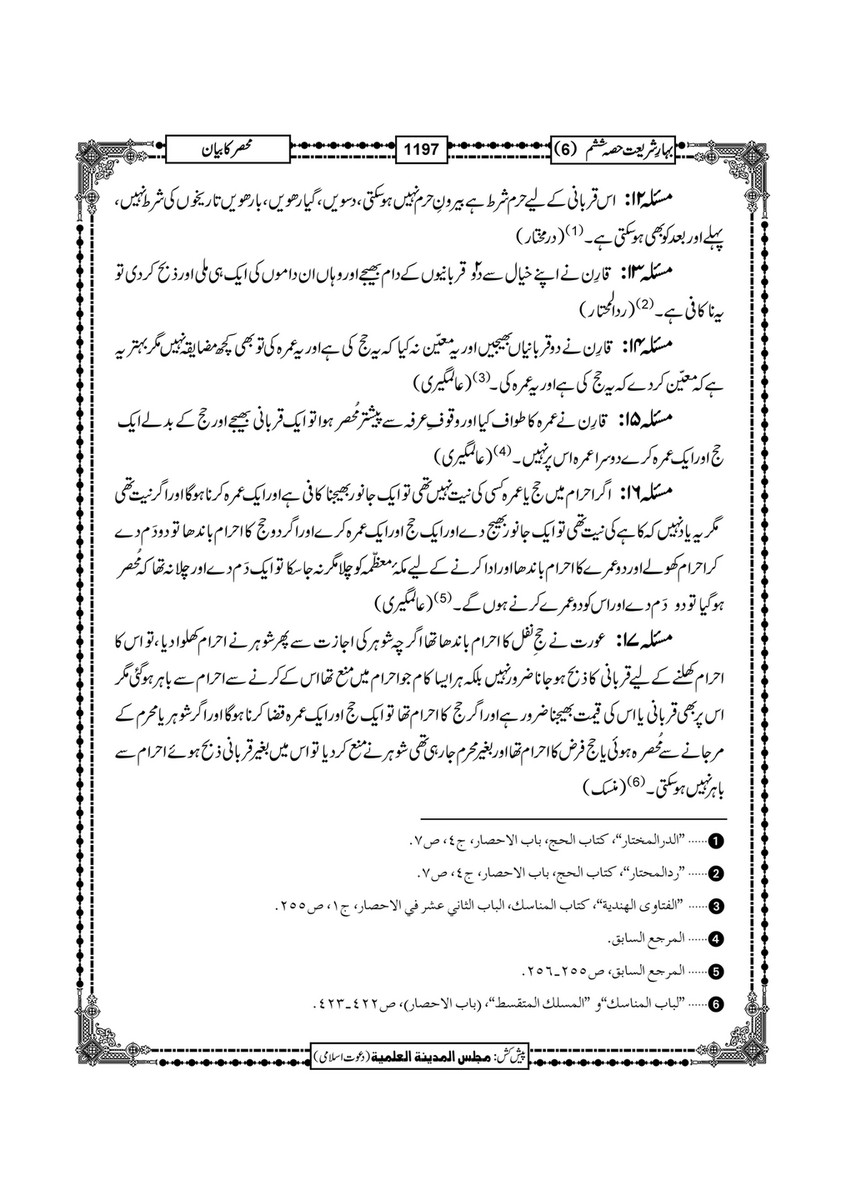 بہارِ شریعت حصہ ششم (6)
1197
محصر کا بیان
مسئلہ ۱۲: اس قربانی کے لیے حرم شرط ہے بیرونِ حرم نہیں ہوسکتی، دسویں، گیارھویں، بارھویں تاریخوں کی شرط نہیں،
پہلے اور بعد کو بھی ہوسکتی ہے۔(1) (درمختار)
مسئلہ ۱۳: قارِن نے اپنے خیال سے دو۲ قربانیوں کے دام بھیجے اور وہاں ان داموں کی ایک ہی ملی اور ذبح کردی تو
یہ ناکافی ہے۔(2) (ردالمحتار)
مسئلہ ۱۴: قارِن نے دو قربانیاں بھیجیں اور یہ معیّن نہ کیا کہ یہ حج کی ہے اور یہ عمرہ کی تو بھی کچھ مضایقہ نہیں مگر بہتر یہ
ہے کہ معیّن کر دے کہ یہ حج کی ہے اور یہ عمرہ کی۔(3) (عالمگیری)
مسئلہ ۱۵: قارِن نے عمرہ کا طواف کیا اور وقوفِ عرفہ سے پیشتر مُحصر ہوا تو ایک قربانی بھیجے اور حج کے بدلے ایک
حج اور ایک عمرہ کرے دوسرا عمرہ اس پر نہیں۔(4) (عالمگیری)
مسئلہ ۱۶: اگر احرام میں حج یا عمرہ کسی کی نیت نہیں تھی تو ایک جانور بھیجنا کافی ہے اور ایک عمرہ کرنا ہوگا اور اگر نیت تھی
مگر یہ یاد نہیں کہ کاہے کی نیت تھی تو ایک جانور بھیج دے اور ایک حج اور ایک عمرہ کرے اور اگر دو حج کا احرام باندھا تو دو دَم دے
کر احرام کھولے اور دو عمرے کا احرام باندھا اور ادا کرنے کے لیے مکۂ معظّمہ کو چلا مگر نہ جاسکا تو ایک دَم دے اور چلا نہ تھا کہ مُحصر
ہوگیا تو دو دَم دے اور اس کو دو عمرے کرنے ہوں گے۔(5) (عالمگیری)
مسئلہ ۱۷: عورت نے حجِ نفل کا احرام باندھا تھا اگرچہ شوہر کی اجازت سے پھر شوہر نے احرام کھلوا دیا، تو اس کا
احرام کھلنے کے لیے قربانی کا ذبح ہوجانا ضرور نہیں بلکہ ہر ایسا کام جو احرام میں منع تھا اس کے کرنے سے احرام سے باہر ہوگئی مگر
اس پر بھی قربانی یا اس کی قیمت بھیجنا ضرور ہے اور اگر حج کا احرام تھا تو ایک حج اور ایک عمرہ قضا کرنا ہوگا اور اگر شوہر یا محرم کے
مرجانے سے مُحصرہ ہوئی یا حج فرض کا احرام تھا اور بغیر محرم جارہی تھی شوہر نے منع کر دیا تو اس میں بغیر قربانی ذبح ہوئے احرام سے
باہر نہیں ہوسکتی۔(6) (منسک)
1 ...... ”الدرالمختار“، کتاب الحج، باب الاحصار، ج٤، ص٧.
2 ...... ”ردالمحتار“، کتاب الحج، باب الاحصار، ج٤، ص٧.
3 ...... ”الفتاوی الهندية“، کتاب المناسك، الباب الثاني عشر في الاحصار، ج١، ص٢٥٥.
4 ...... المرجع السابق.
5 ...... المرجع السابق، ص٢٥٥-٢٥٦.
6 ...... ”لباب المناسك“ و ”المسلك المتقسط“، (باب الاحصار)، ص٤٢٢-٤٢٣.
پیش کش: مجلس المدینة العلمیة (دعوت اسلامی)